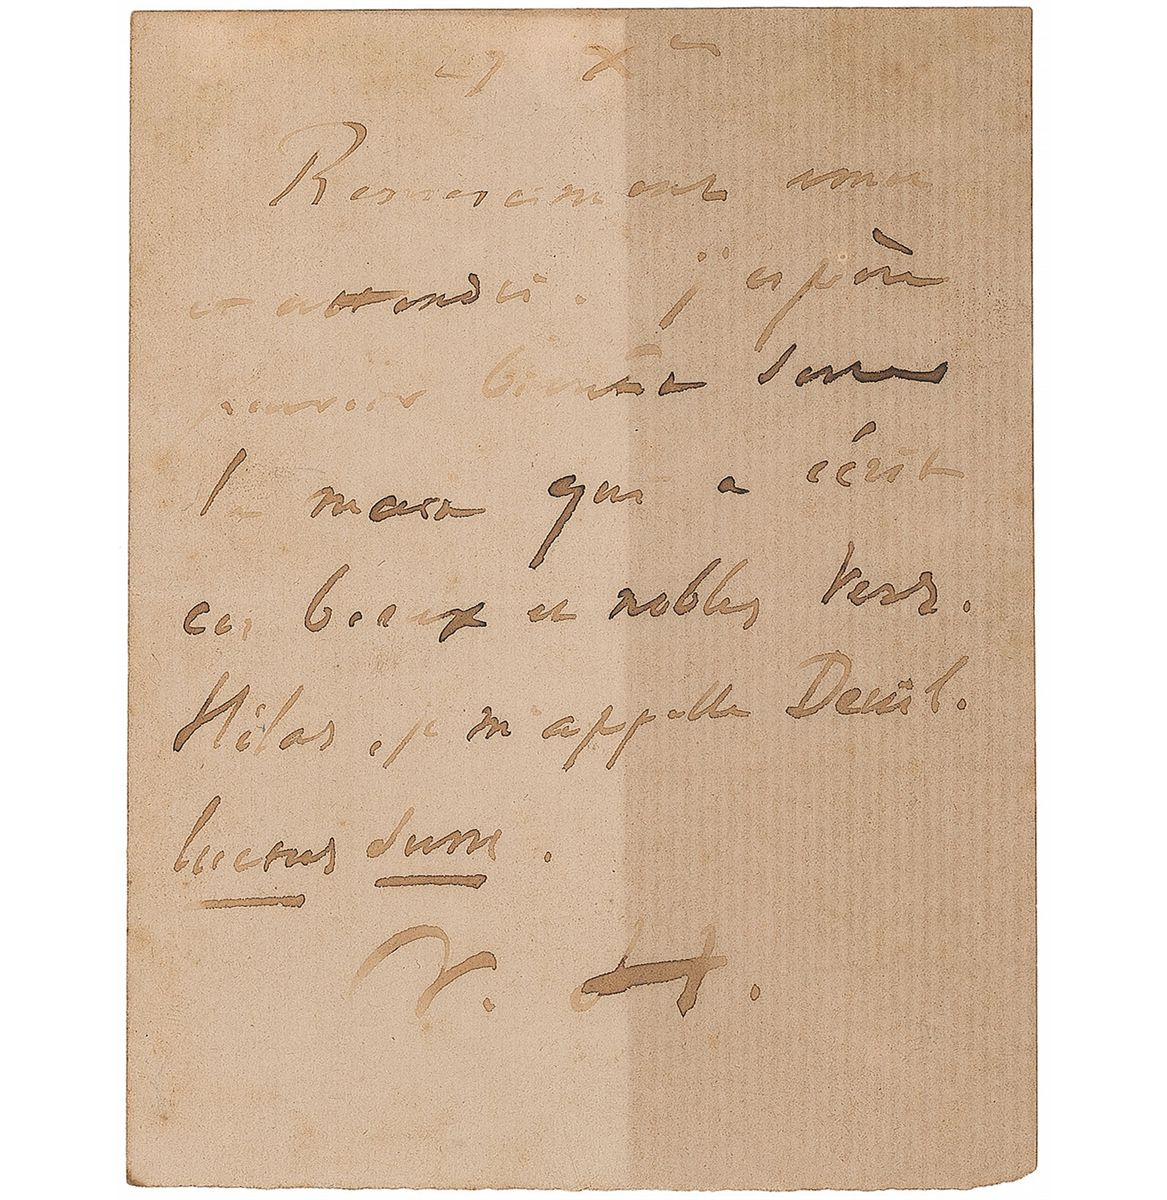 29 X
Remerciement ému
et attendri. j'espère
pouvoir bientôt serrer
la main qui a écrit
ces beaux et nobles vers.
Hélas, je m'appelle Deuil.
luctus sum.
V. H.